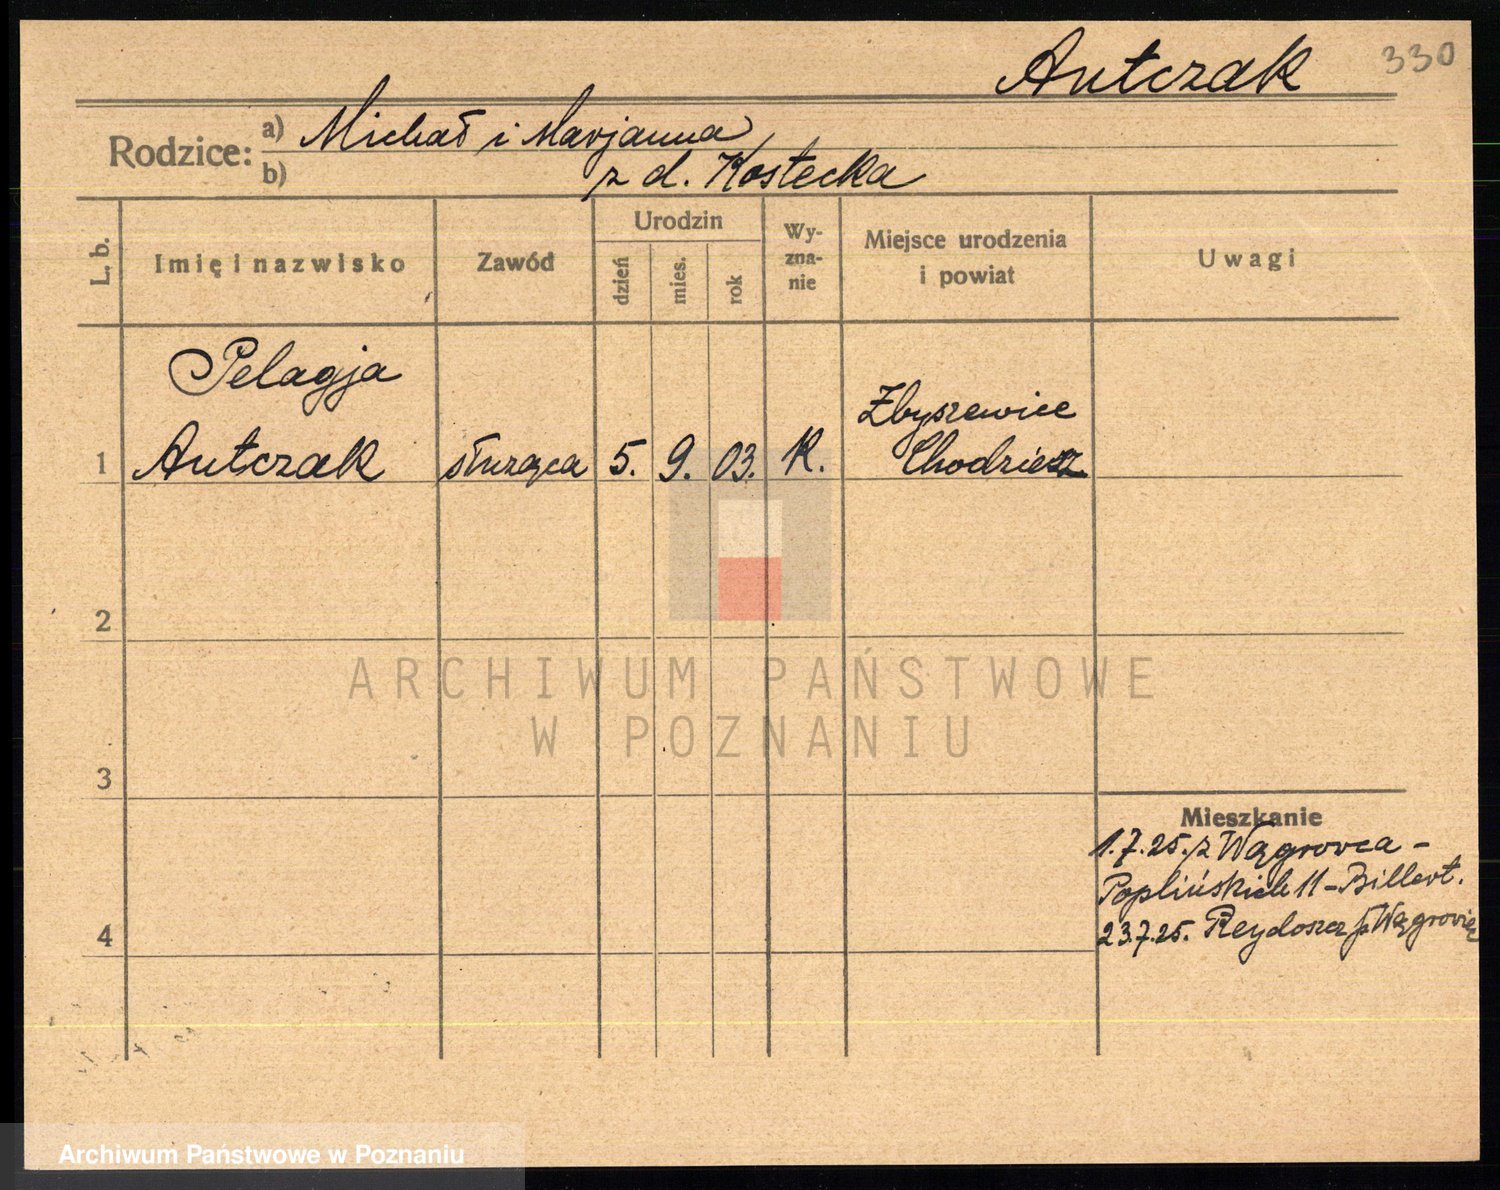 Antczak 330
Rodzice: a) Michał i Marjanna
b) z d. Kostecka
L. b.
Imię i nazwisko
Zawód
Urodzin
dzień
mies.
rok
Wy-
zna-
nie
Miejsce urodzenia
i powiat
Uwagi
Pelagja
1 Antczak służąca 5. 9. 03. K. Zbyszewice
Chodzież
2
ARCHIWUM PAŃSTWOWE
W POZNANIU
3
Mieszkanie
1.7.25. z Wągrowca -
Poplińskich 11 - Billert.
4
23.7.25. p. Wągrowiec
Archiwum Państwowe w Poznaniu